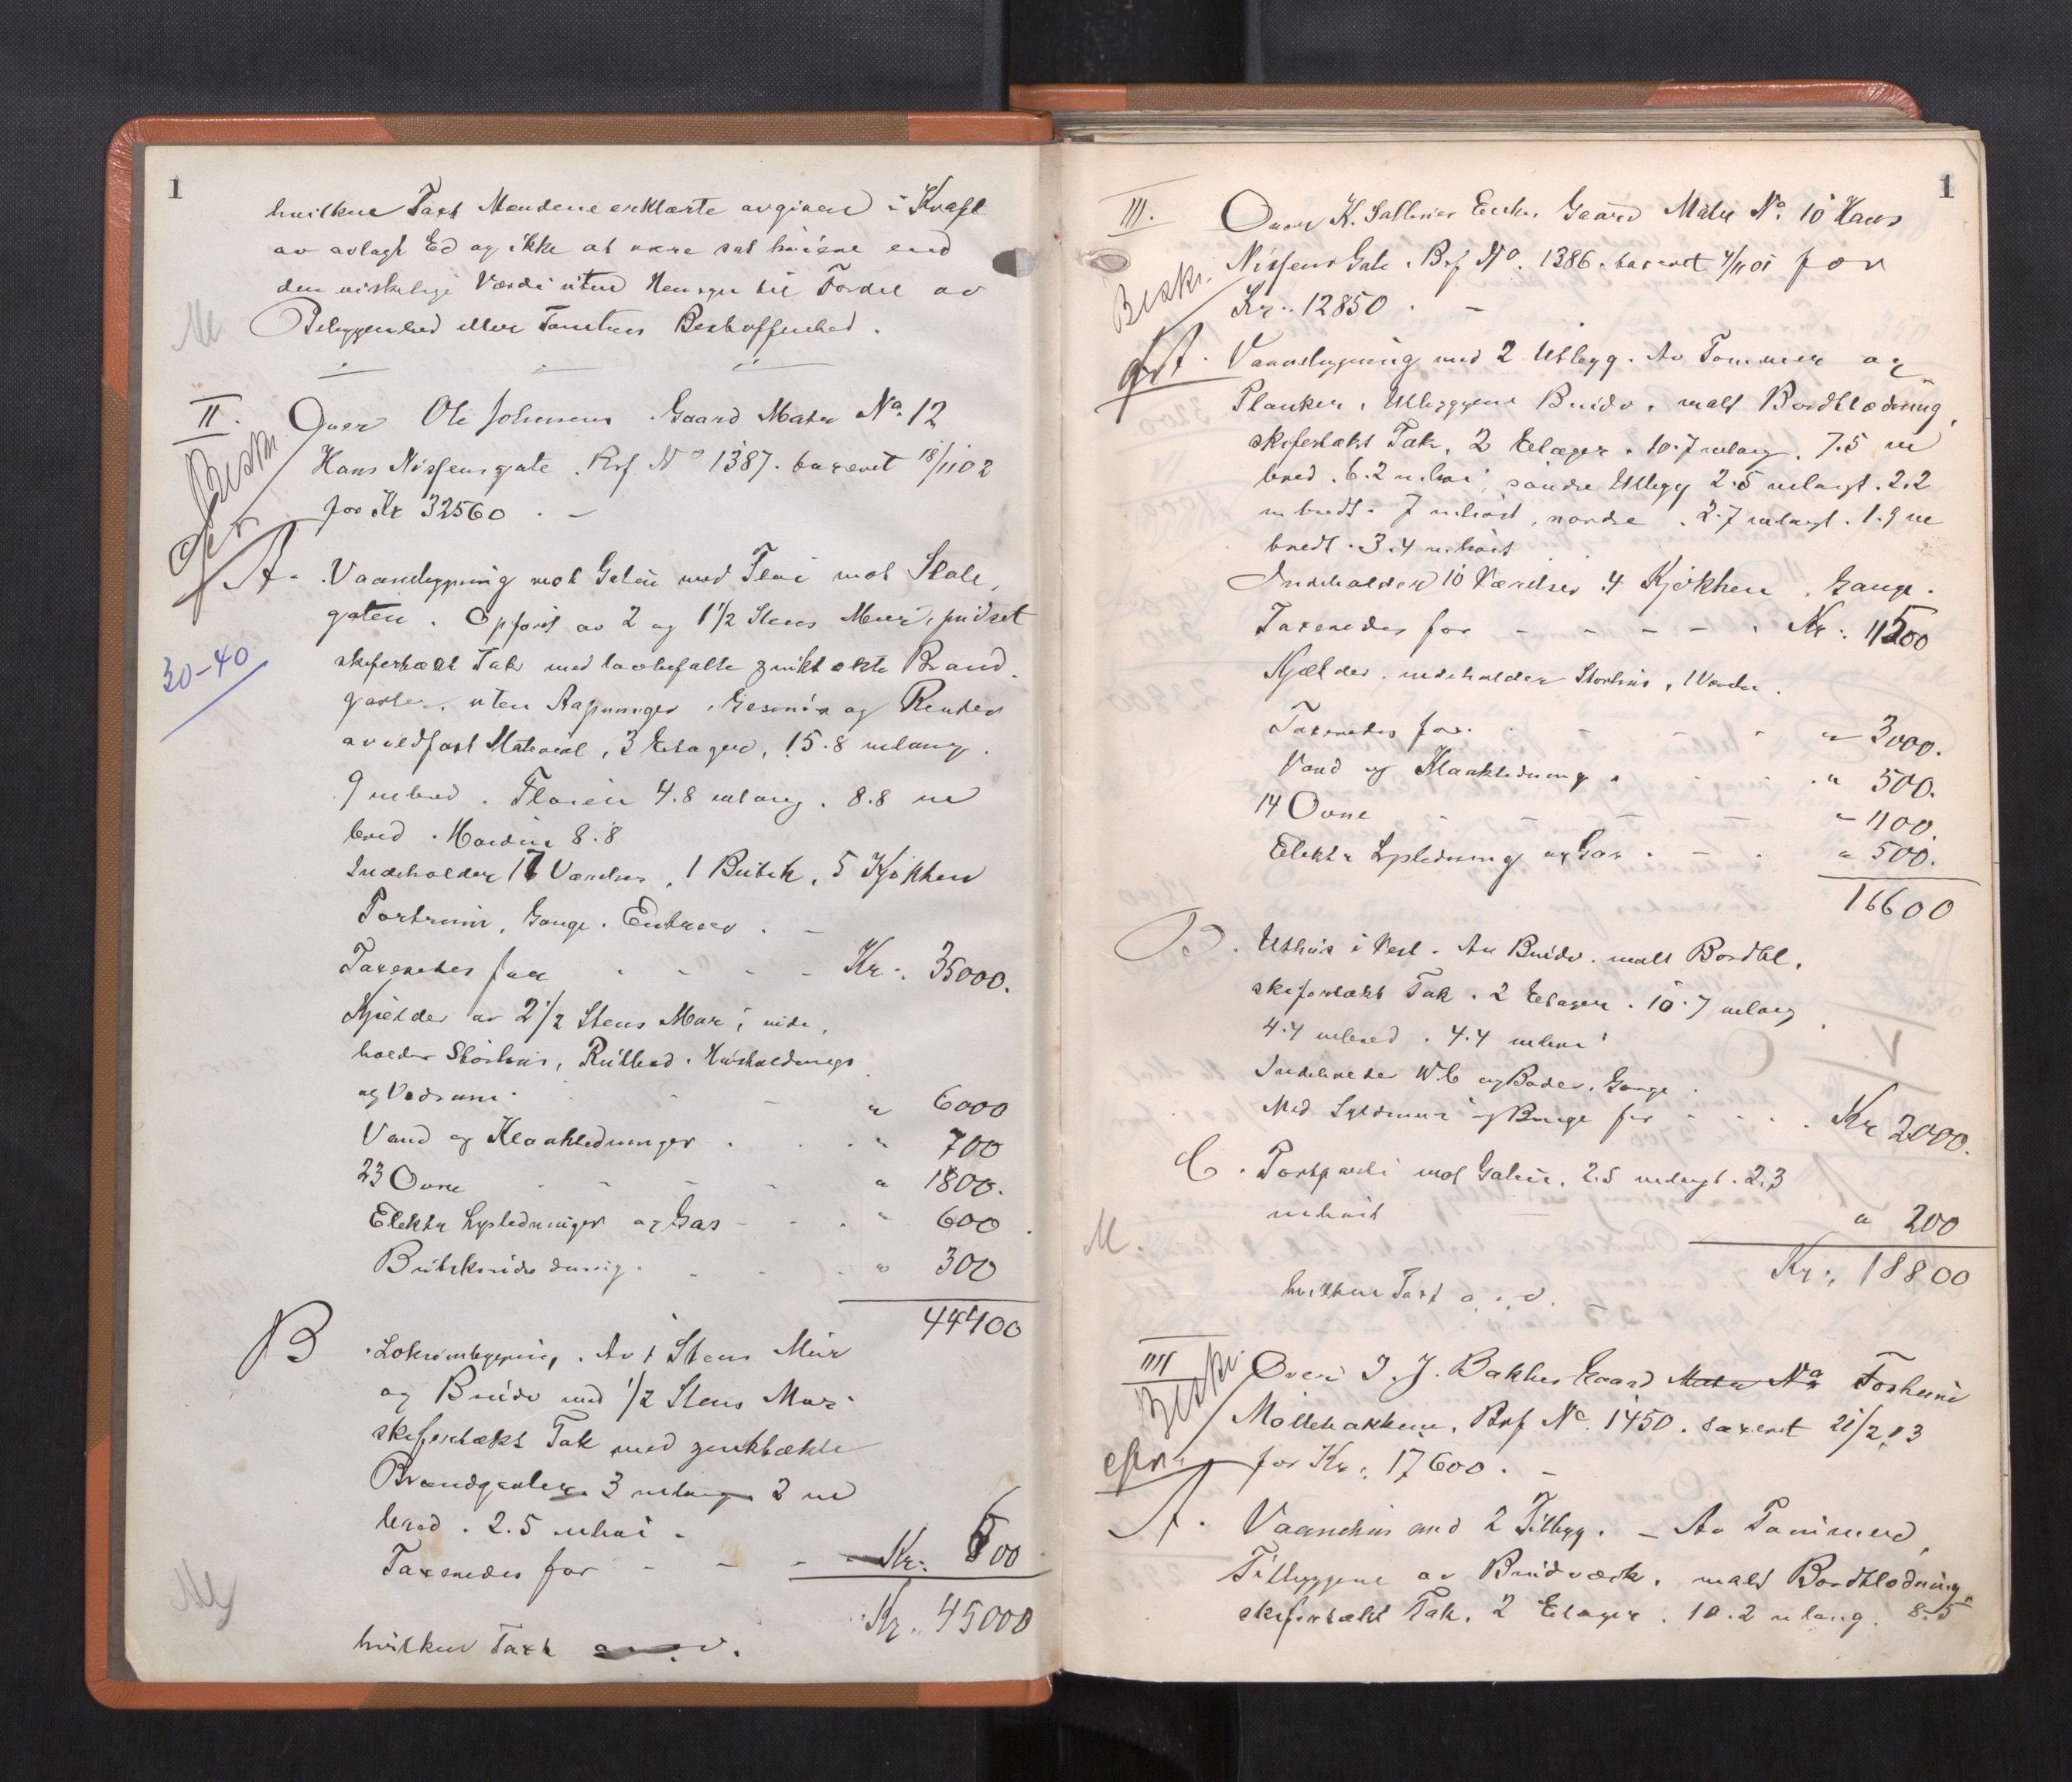 1
hvilken Taxt Mændene erklærte avgiven i Kraft
av avlagt Ed og ikke at være sat høiere end
den virkelige Værdi uten Hensyn til Fordel av
Beliggenhed eller Tomtens Beskaffenhed.
II.
Beskr.
Over Ole Johnsens Gaard Matr No. 12
Hans Nissensgate. Brf No 1387. taxeret 18/11 02
for Kr 32560. -
A. Vaanbygning mot Gaten med Fløi mot Stale,
gaten. Opført av 2 og 1 1/2 Stens Mur, pudset
skifertækt Tak med zinktækte Brand,
gavler, uten Aapninger, Gesims og Render
av ildfast Material, 3 Etager, 15.8 m lang.
9 m bred. Fløien 4.8 m lang. 8.8 m
bred. Høiden 8.8
Indeholder 17 Værelser, 1 Butik, 5 Kjøkken
Portrum, Gange. Entreer. -
Taxeredes for - - - - Kr: 35000.
Kjælder av 2 1/2 Stens Mur, inde,
holder Storhus, Rullebod. Husholdnings
og Vedrum. - - " 6000
Vand og Kloakledninger . . . " 700
23 Ovne - - - - " 1800.
Elektr Lysledninger og Gas - . . " 600
Butiksindredning. . . . " 300
44400
B. Lokumbygning. Av 1 Stens Mur
og Bindv med 1/2 Stens Mur.
skifertækt Tak med zinktækte
Brandgavler. 3 m lang 2 m
bred. 2.5 m høi.
Taxeredes for - - - Kr: 600
Kr. 45000
hvilken Taxt a. s. v.
30-40
1
III.
Beskr.
Over K. Enke. Gaard Matr No. 10 Hans
Nissens Gate. Brf No. 1386. taxeret 4/11 01 for
Kr. 12850. -
A. Vaanbygning med 2 Utbygg. Av Tømmer og
Planker, Utbyggene Bindv. malt Bordklædning,
skifertækt Tak, 2 Etager. 10.7 m lang. 7.5 m
bred. 6.2 m høi, søndre Utbygg 2.5 m langt. 2.2
m bredt. 7 m høit, nordre. 2.7 m langt. 1.9 m
bredt. 3.4 m høit
Indeholder 10 Værelser 4 Kjøkken, Gange.
Taxeredes for - - - - - . Kr: 11500
Kjælder, indeholder Storhus, 1 Værelse.
Taxeredes for. . . " 3000.
Vand og Kloakledning . . . " 500.
14 Ovne - - - - " 1100.
Elektr Lysledning og Gas . - . " 500.
16600
B. Uthus i Vest. Av Bindv. malt Bordkl.
skifertækt Tak. 2 Etager. 10.7 m lang
4.4 m bred. 4.4 m høi
Indeholder W.C og Boder, Gange.
Med og Binge for - - . . Kr 2000.
C. Portparti mot Gaten. 2.5 m langt. 2.3
m høit " 200
Kr: 18800
M.
hvilken Taxt a. s. v.
IIII
Beskr.
Over I. J. Bakkes Gaard Matr No
Møllebakken, Brf No. 1450. taxeret 21/2 13
for Kr: 17600. -
A. Vaanhus med 2 Tilbyg. - Av Tømmer,
Tilbyggene av Bindværk, malt Bordklædning,
skifertækt Tak. 2 Etager. 10.2 m lang. 8.5